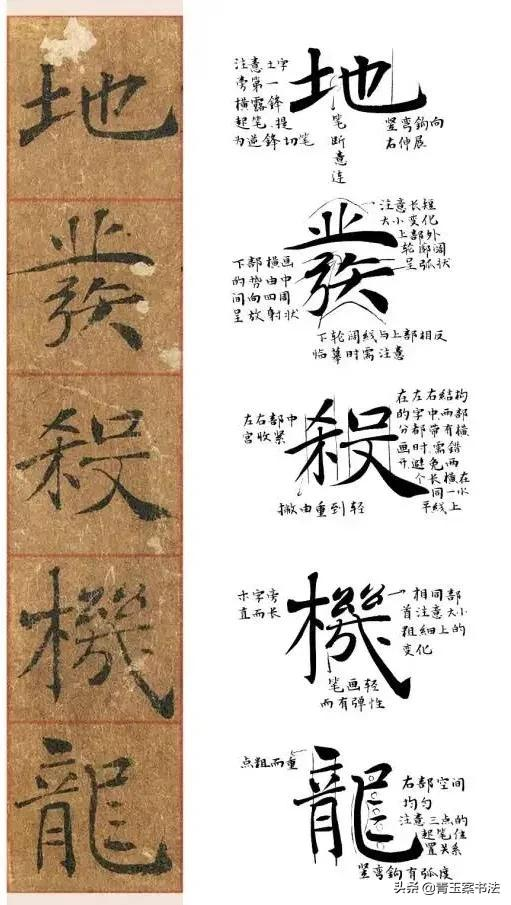 地
發
殺
機
龍
注意土字
旁第一
横露锋
起笔,提
为逆锋切笔
地
笔断意连
竖弯鉤向
右伸展
注意长短
大小变化
上部外
轮廓阔
呈弧状
發
下部横画
的势由中
间向四周
呈放射状
下轮阔线与上部相反
临摹时需注意
左右部中
宫收紧
殺
在左右结构
的字中,两部
分都带有横
画时,需错
开,避免两
个长横在
同一水
平线上
撇由重到轻
木字旁
直而长
機
相同部
首注意大小
粗细上的
变化
笔画轻
而有弹性
点粗而重
龍
右部空间
均匀
注意三点的
起笔位
置关系
竖弯鉤有弧度
头条@青玉案书法